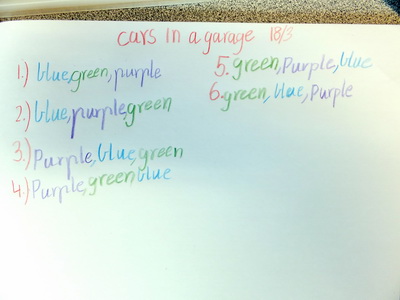 cars in a garage 18/3
1.) blue,green,purple
2.) blue,purple,green
3.) Purple,blue,green
4.) Purple,green,blue
5. green,Purple,blue
6. green,blue,Purple